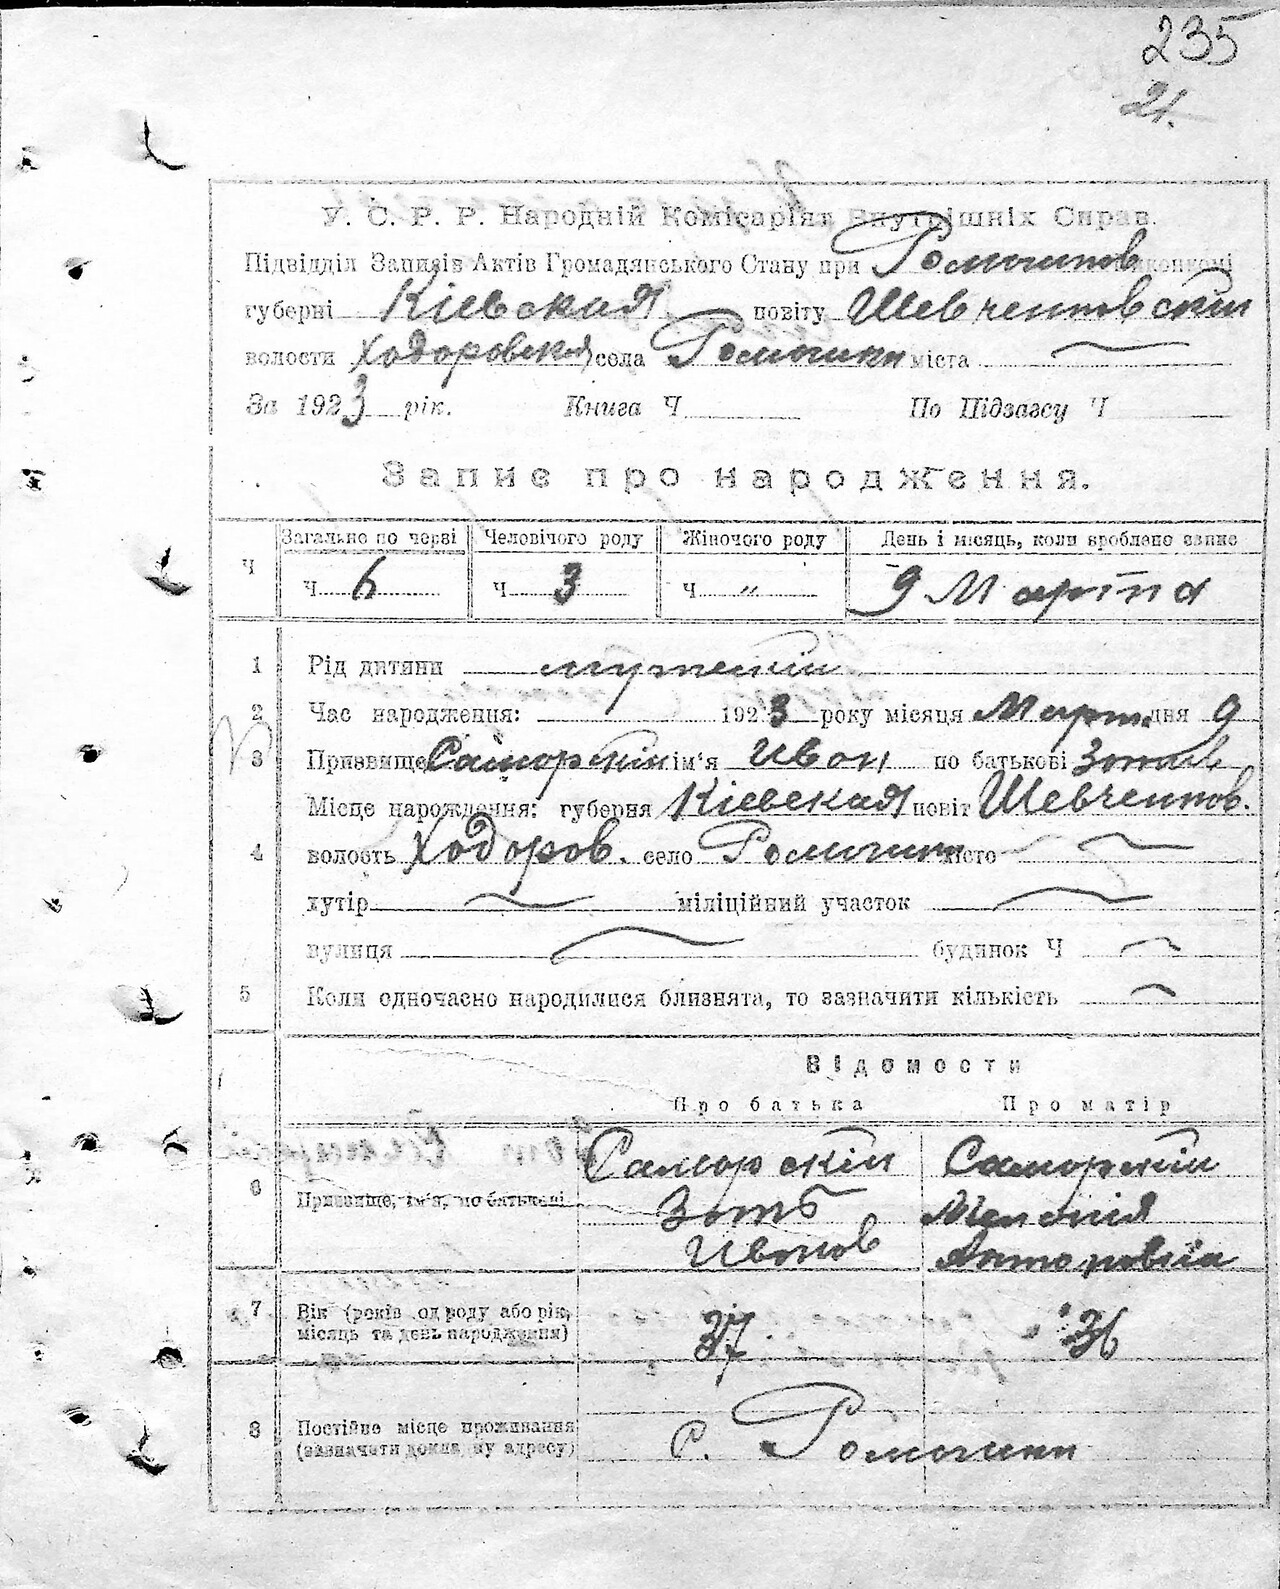 235
21.
У. С. Р. Р. Народній Комісаріят Внутрішніх Справ.
Підвідділ Записів Актів Громадянського Стану при Ромашков
губерні Кіевская повіту Шевченковскій
волости Ходоровская села Ромашки міста
За 1923 рік. Книга Ч По Підзагсу Ч
Запис про народження.
Ч Загально по черзі Человічого роду Жіночого роду День і місяць, коли вроблено запис
Ч 6 Ч 3 Ч „ 9 Марта
1 Рід дитяни мужескій
2 Час народження: 1923 року місяця Март дня 9
3 Призвище Саморскій ім'я Иван по батькові Зотів
Місце народження: губерня Кіевская повіт Шевченков.
4 волость Ходоров. село Ромашки місто
хутір міліційний участок
вулиця будинок Ч
5 Коли одночасно народилися близнята, то зазначити кількість
Відомости
Про батька Про матір
Саморскій Саморскій
6 Призвище, ім'я, по батькові Зотъ
Иванов
7 Вік (років од роду або рік, 37 36
місяць та день народження)
8 Постійне місце проживання с. Ромашки
(зазначати докладну адресу)